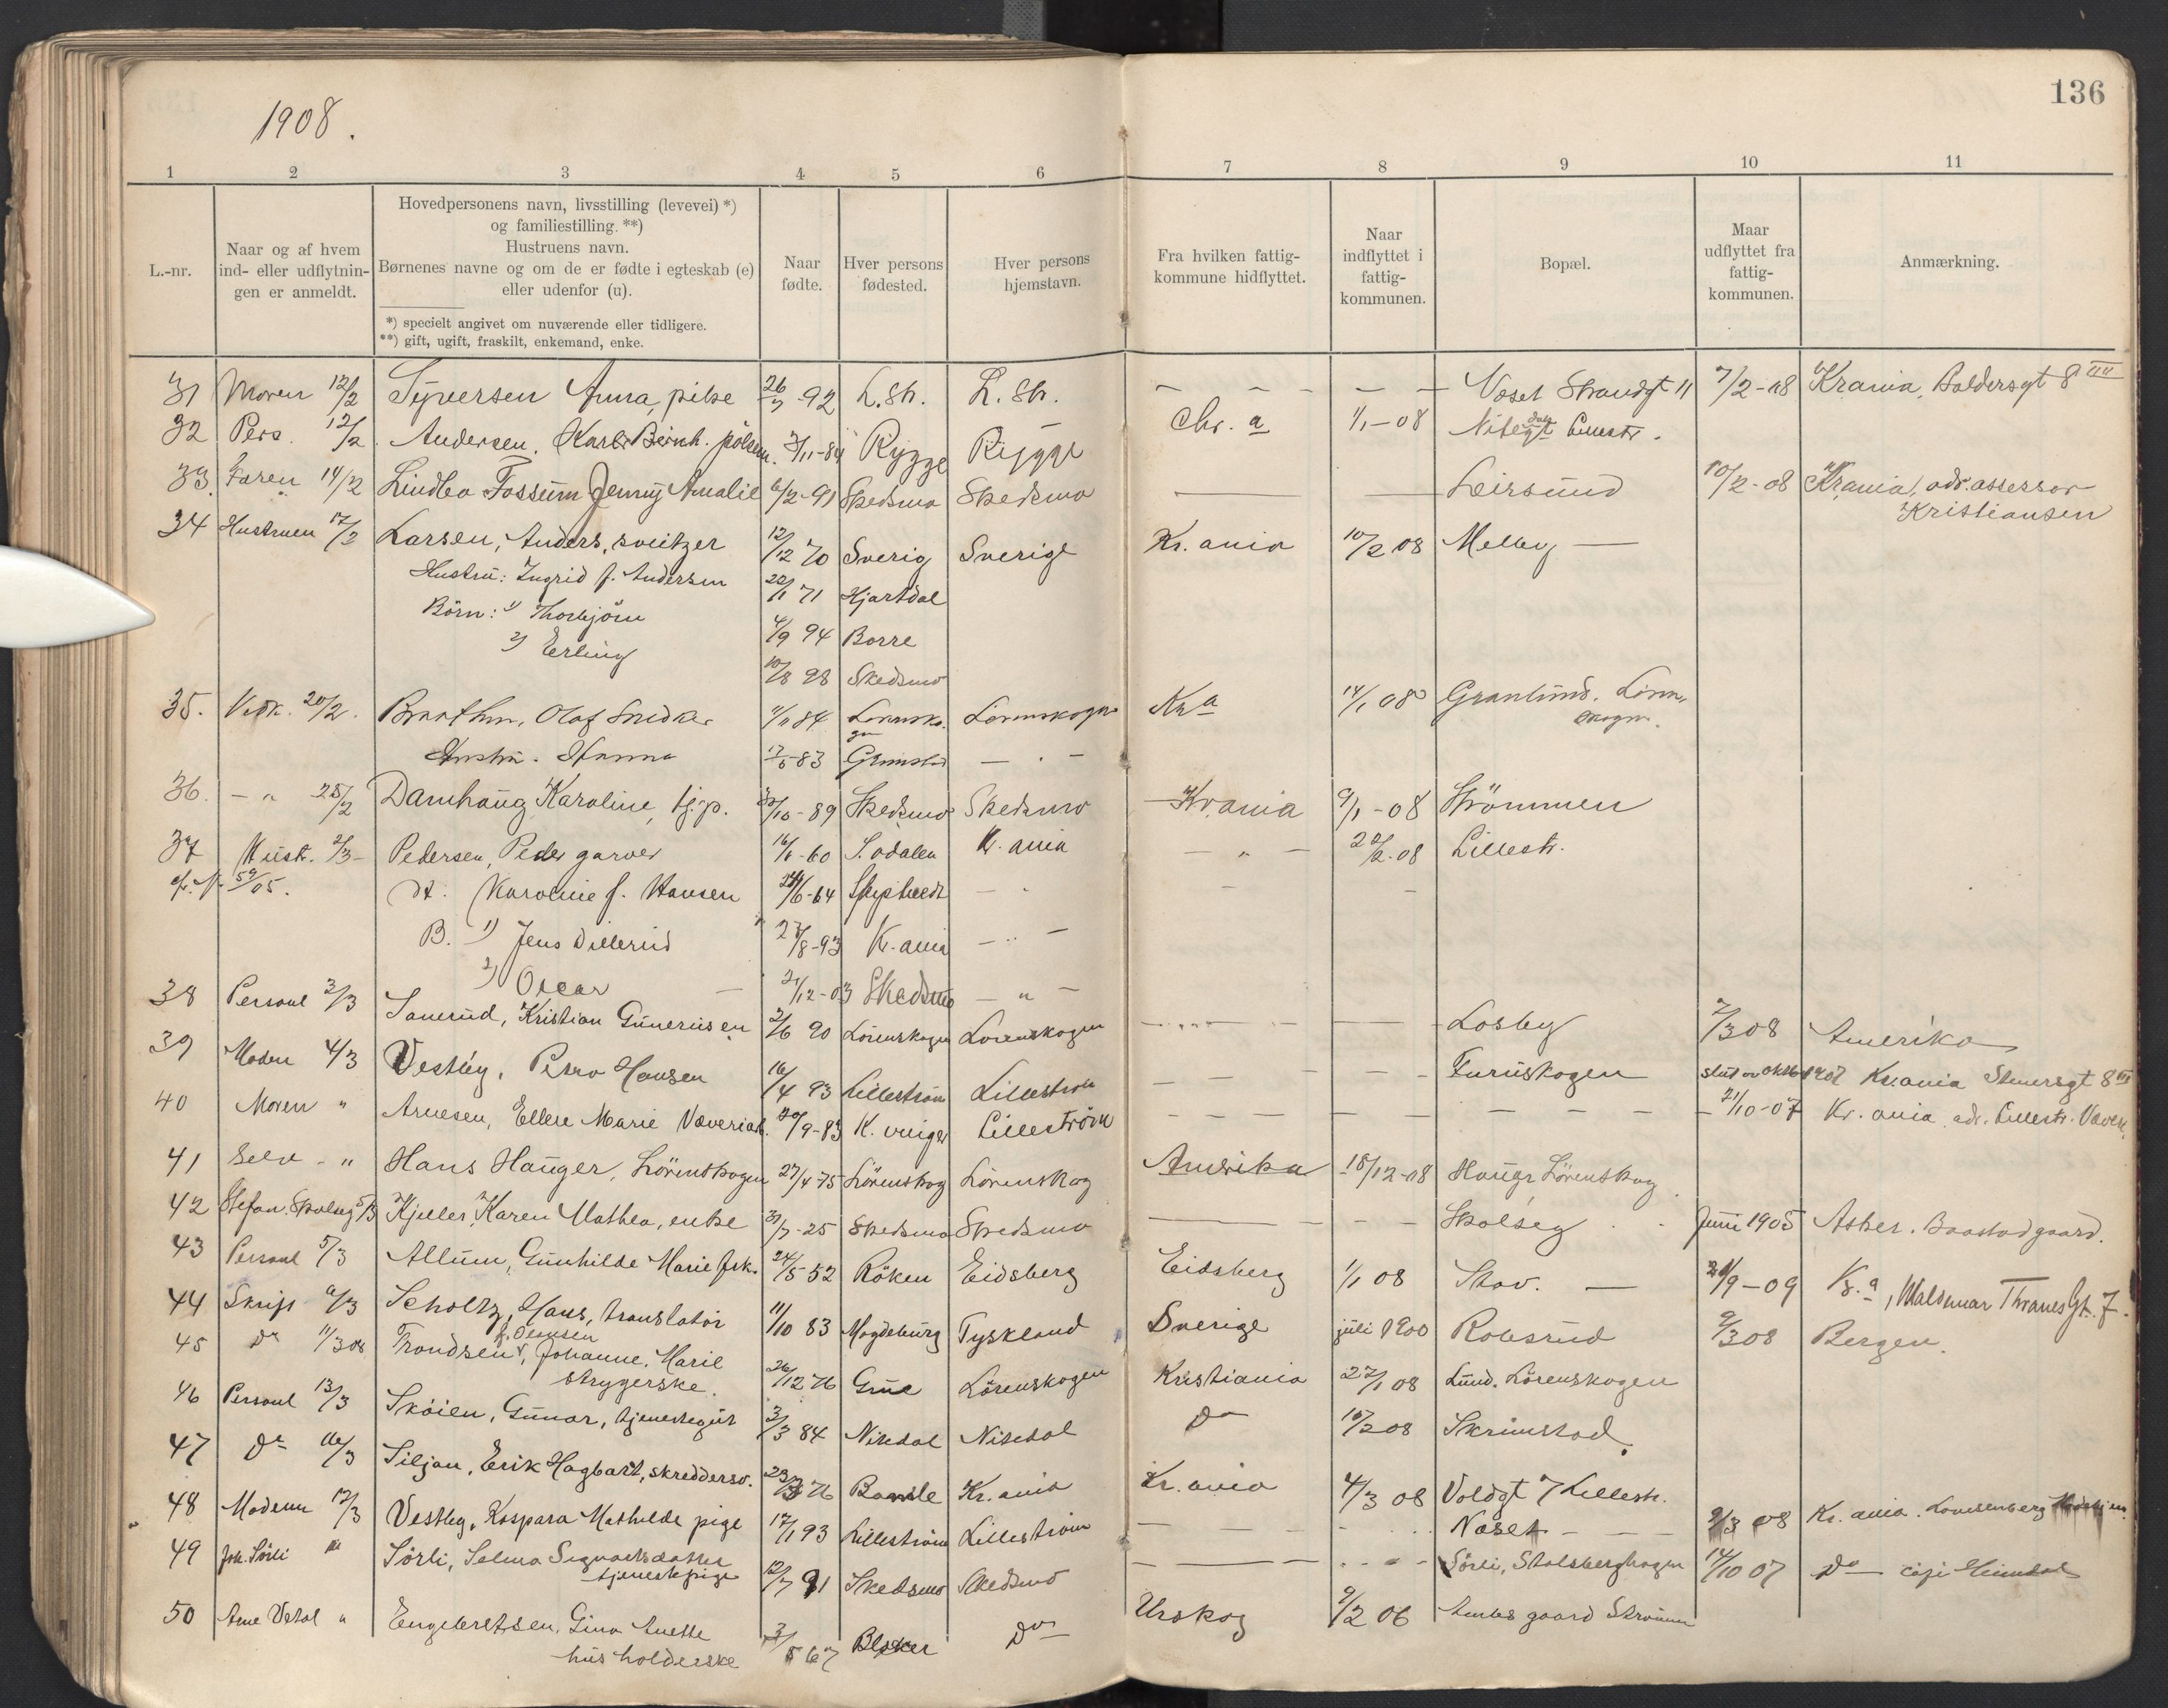 136
1908.
1 2 3 4 5 6 7 8 9 10 11
L.-nr.
Naar og af hvem
ind- eller udflytnin-
gen er anmeldt.
Hovedpersonens navn, livsstilling (levevei) *)
og familiestilling. **)
Hustruens navn.
Børnenes navne og om de er fødte i egteskab (e)
eller udenfor (u).
*) specielt angivet om nuværende eller tidligere.
**) gift, ugift, fraskilt, enkemand, enke.
Naar
fødte.
Hver persons
fødested.
Hver persons
hjemstavn.
Fra hvilken fattig-
kommune hidflyttet.
Naar
indflyttet i
fattig-
kommunen.
Bopæl.
Maar
udflyttet fra
fattig-
kommunen.
Anmærkning.
31 Moren 12/2 Syversen Anna, pike 26/7-92 L.str. L.str. — — — — — Voset Strandgt 11 7/2-08 Krania, Baldersgt 8 III
32 Pers. 12/2 Andersen, Karl Bernh. pölsem. /11-84 Rygge Rygge Chr.a 1/1-08 Nitedalsgt Lillestr.
33. Faren 14/2 Lindbo Fossum Jenny Amalie 6/2-91 Skedsmo Skedsmo — — Leirsund 10/2-08 Krania, adr. assessor
Kristiansen
34 Hustruen 17/2 Larsen, Anders, sveitzer 12/12 70 Sverig Sverige Kr.ania 10/2 08 Melby —
Hustru: Ingrid f. Andersen 22/1 71 Hjartdal
Börn: 1) Thorbjörn 4/9 94 Borre
2) Erling 10/8 98 Skedsmo
35. Vedk. 20/2. Braathen, Olaf Snedker 1/11 84 Lörensko-
gen Lörenskogen Kra 14/1 08 Granlund. Lören-
skogen.
Hustru. Hanna 17/5-83 Grimstad — " —
36. - " 25/2 Damhaug, Karoline, tj.p. 30/10-89 Skedsmo Skedsmo Kr.ania 9/1-08 Strömmen
37 Hustr. 2/3- Pedersen, Peder garver 16/1-60 S. odalen Kr.ania — " — 22/2-08 Lillestr.
59/05. H. Karoline f. Hansen 24/6-64 — "
B. 1) Jens Dillerud " 27/8-93 Kr.ania — " —
2) Oscar — 21/12-03 Skedsmo — " —
38 Personl 3/3 Sanerud, Kristian Gunerius en 2/6 90 Lörenskogen Lörenskogen — — Losby 2/3 08 Amerika
39 Moden 4/3 Vestby, Petra Hansen 16/4 93 Lilleström Lilleström — — — Furuskogen slut av oktb 1907 Kr.ania Stenersgt 8 III
40 Moren " Arnesen, Ellen Marie Væverisk. 20/9-83 K. vinger Lilleström — — — — 21/10-07 Kr.ania adr. Lillestr. Væveri
41 Selv - " Hans Hauger, Lörenskogen 27/4-75 Lörenskog Lörenskog Amerika 18/12-08 Hauger Lörenskog
42 Stefan. Skolseg 5/3 Kjeller, Karen Mathea, enke 31/7-25 Skedsmo Skedsmo — — — Skolseg Juni 1905 Asker. Baastadgaard.
43 Personl 5/3 Allum, Gunhilde Marie frk. 24/5 52 Röken Eidsberg Eidsberg 1/1 08 Stav. — /9-09 Kr.a, Waldemar Thranes Gt. 7.
44 Skrift /3 Scholtz, Hans, translatör 11/10 83 Magdeburg Tyskland Sverige juli 1900 Robsrud 9/3 08 Bergen.
45 Do 11/3 08 Trondsen, f. Olausen Johanne Marie
strygerske. 26/12 76 Grue Lörenskogen Kristiania 22/1 08 Lund. Lörenskogen
46 Personl 13/3 Sköien, Gunar, tjenestegut 3/3 84 Nitedal Nitedal Do 10/2 08 Skrimstad.
47 Do 16/3 Siljan, Erik Hagbart, skreddersv. 23/3 76 Bamle Kr.ania Kr.ania 4/3 08 Voldgt 7 Lillestr.
48 Modern 17/3 Vestby, Kaspara Mathilde pige 17/1 93 Lilleström Lilleström — — — Noset — — 9/3 08 Kr.ania. Lovisenberg
49 Joh. Sörli " Sörli, Selma Sigvartsdatter
tjenestepige 12/7 91 Skedsmo Skedsmo — — — Sörli, Stalsberghagen 14/10 07 Do —
50 Arne Vstal " Engebretsen, Gina Anette
husholderske 3/8 67 Blaker Do Urskog 9/2 06 gaard Strömmen